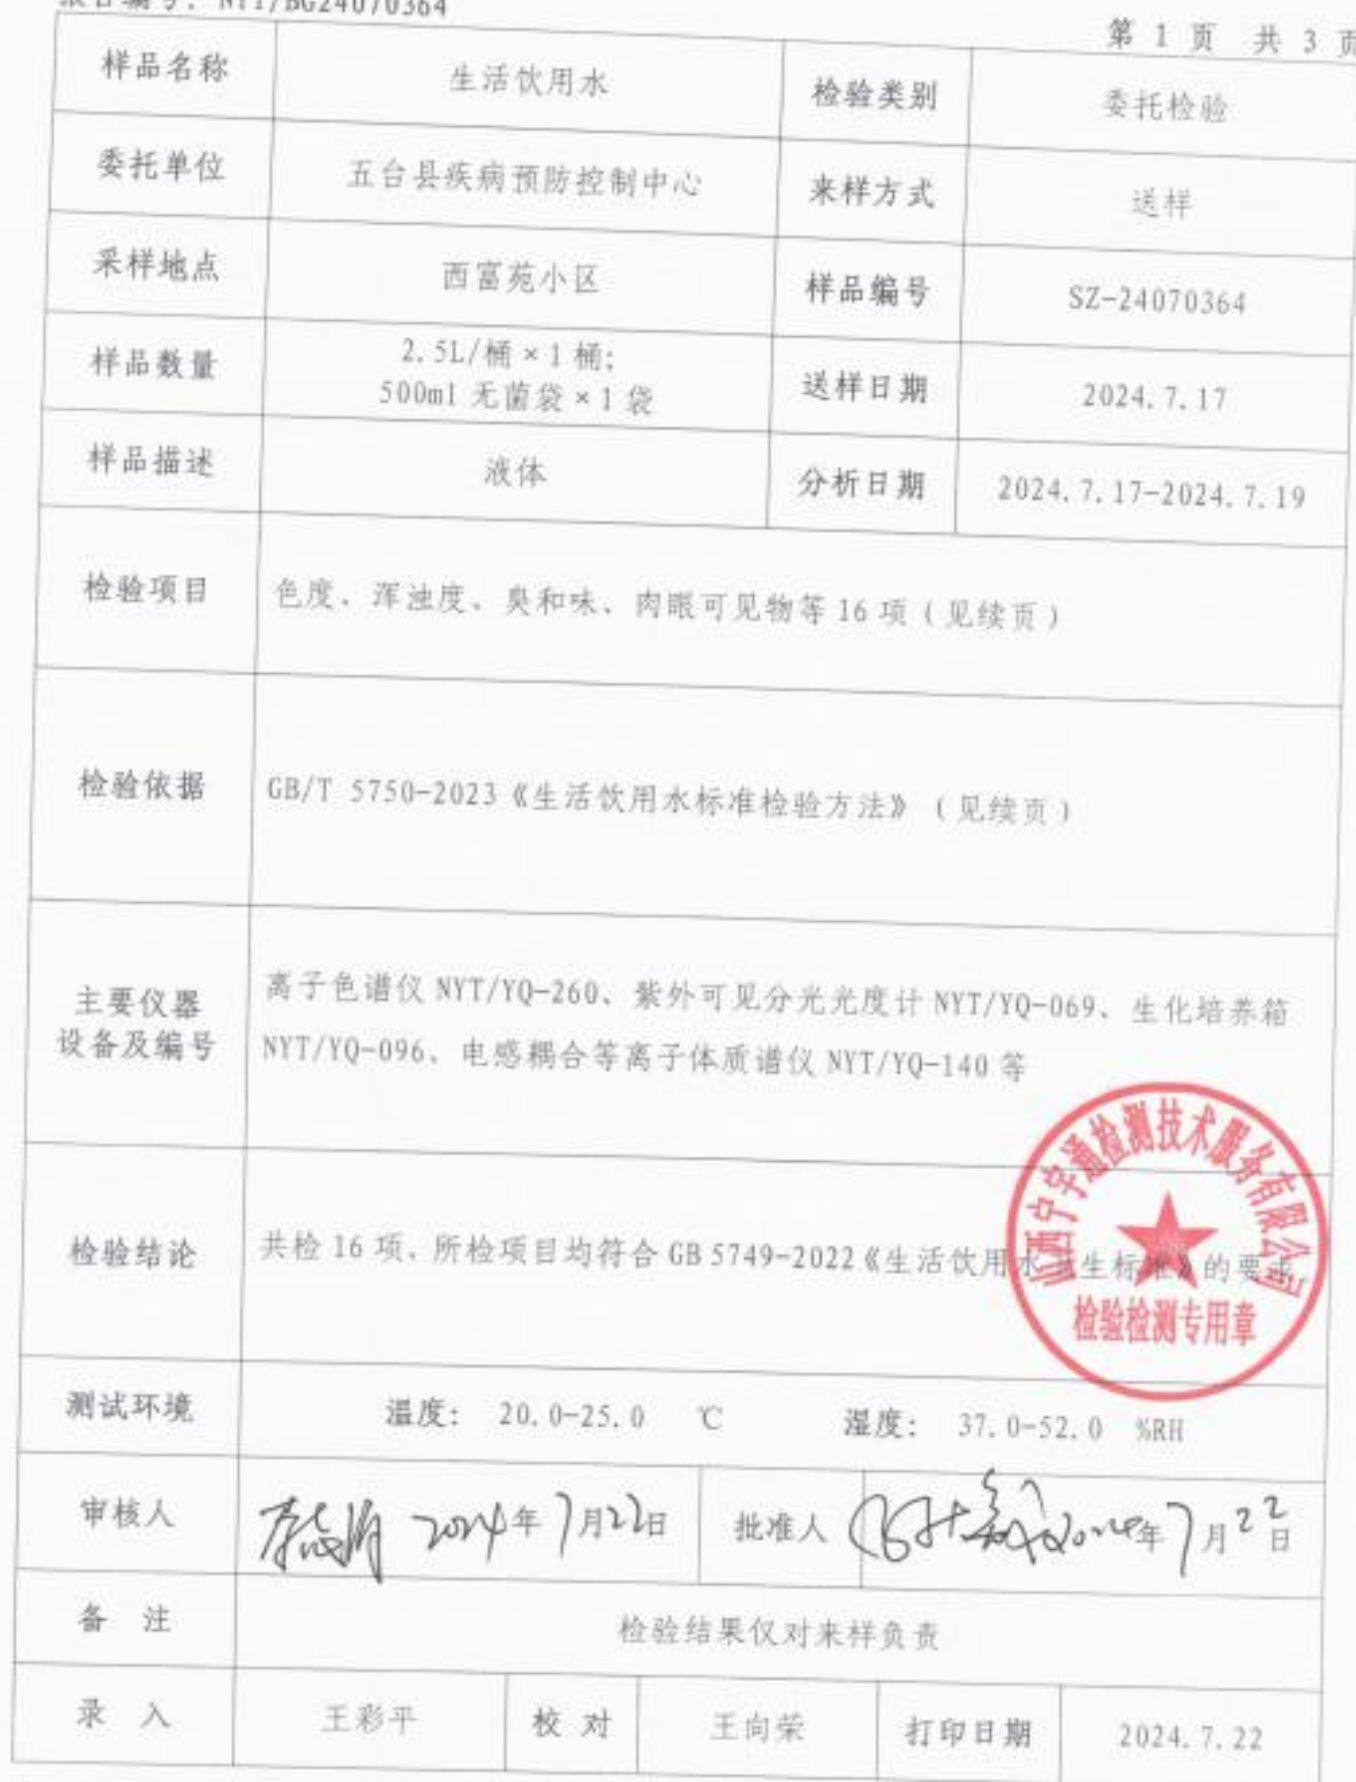 报告编号: NYT/BG24070364
第 1 页 共 3 页
样品名称 生活饮用水 检验类别 委托检验
委托单位 五台县疾病预防控制中心 来样方式 送样
采样地点 西富苑小区 样品编号 SZ-24070364
样品数量 2.5L/桶×1桶;
500ml 无菌袋×1袋 送样日期 2024.7.17
样品描述 液体 分析日期 2024.7.17-2024.7.19
检验项目 色度、浑浊度、臭和味、肉眼可见物等 16 项(见续页)
检验依据 GB/T 5750-2023《生活饮用水标准检验方法》(见续页)
主要仪器
设备及编号
离子色谱仪 NYT/YQ-260、紫外可见分光光度计 NYT/YQ-069、生化培养箱
NYT/YQ-096、电感耦合等离子体质谱仪 NYT/YQ-140 等
检验结论 共检 16 项、所检项目均符合 GB 5749-2022《生活饮用水卫生标准》的要求。
山西宁宇通检测技术服务有限公司
检验检测专用章
测试环境 温度: 20.0-25.0 ℃ 湿度: 37.0-52.0 %RH
审核人 2024年7月22日 批准人 2024年7月22日
备 注 检验结果仅对来样负责
录 入 王彩平 校 对 王向荣 打印日期 2024.7.22